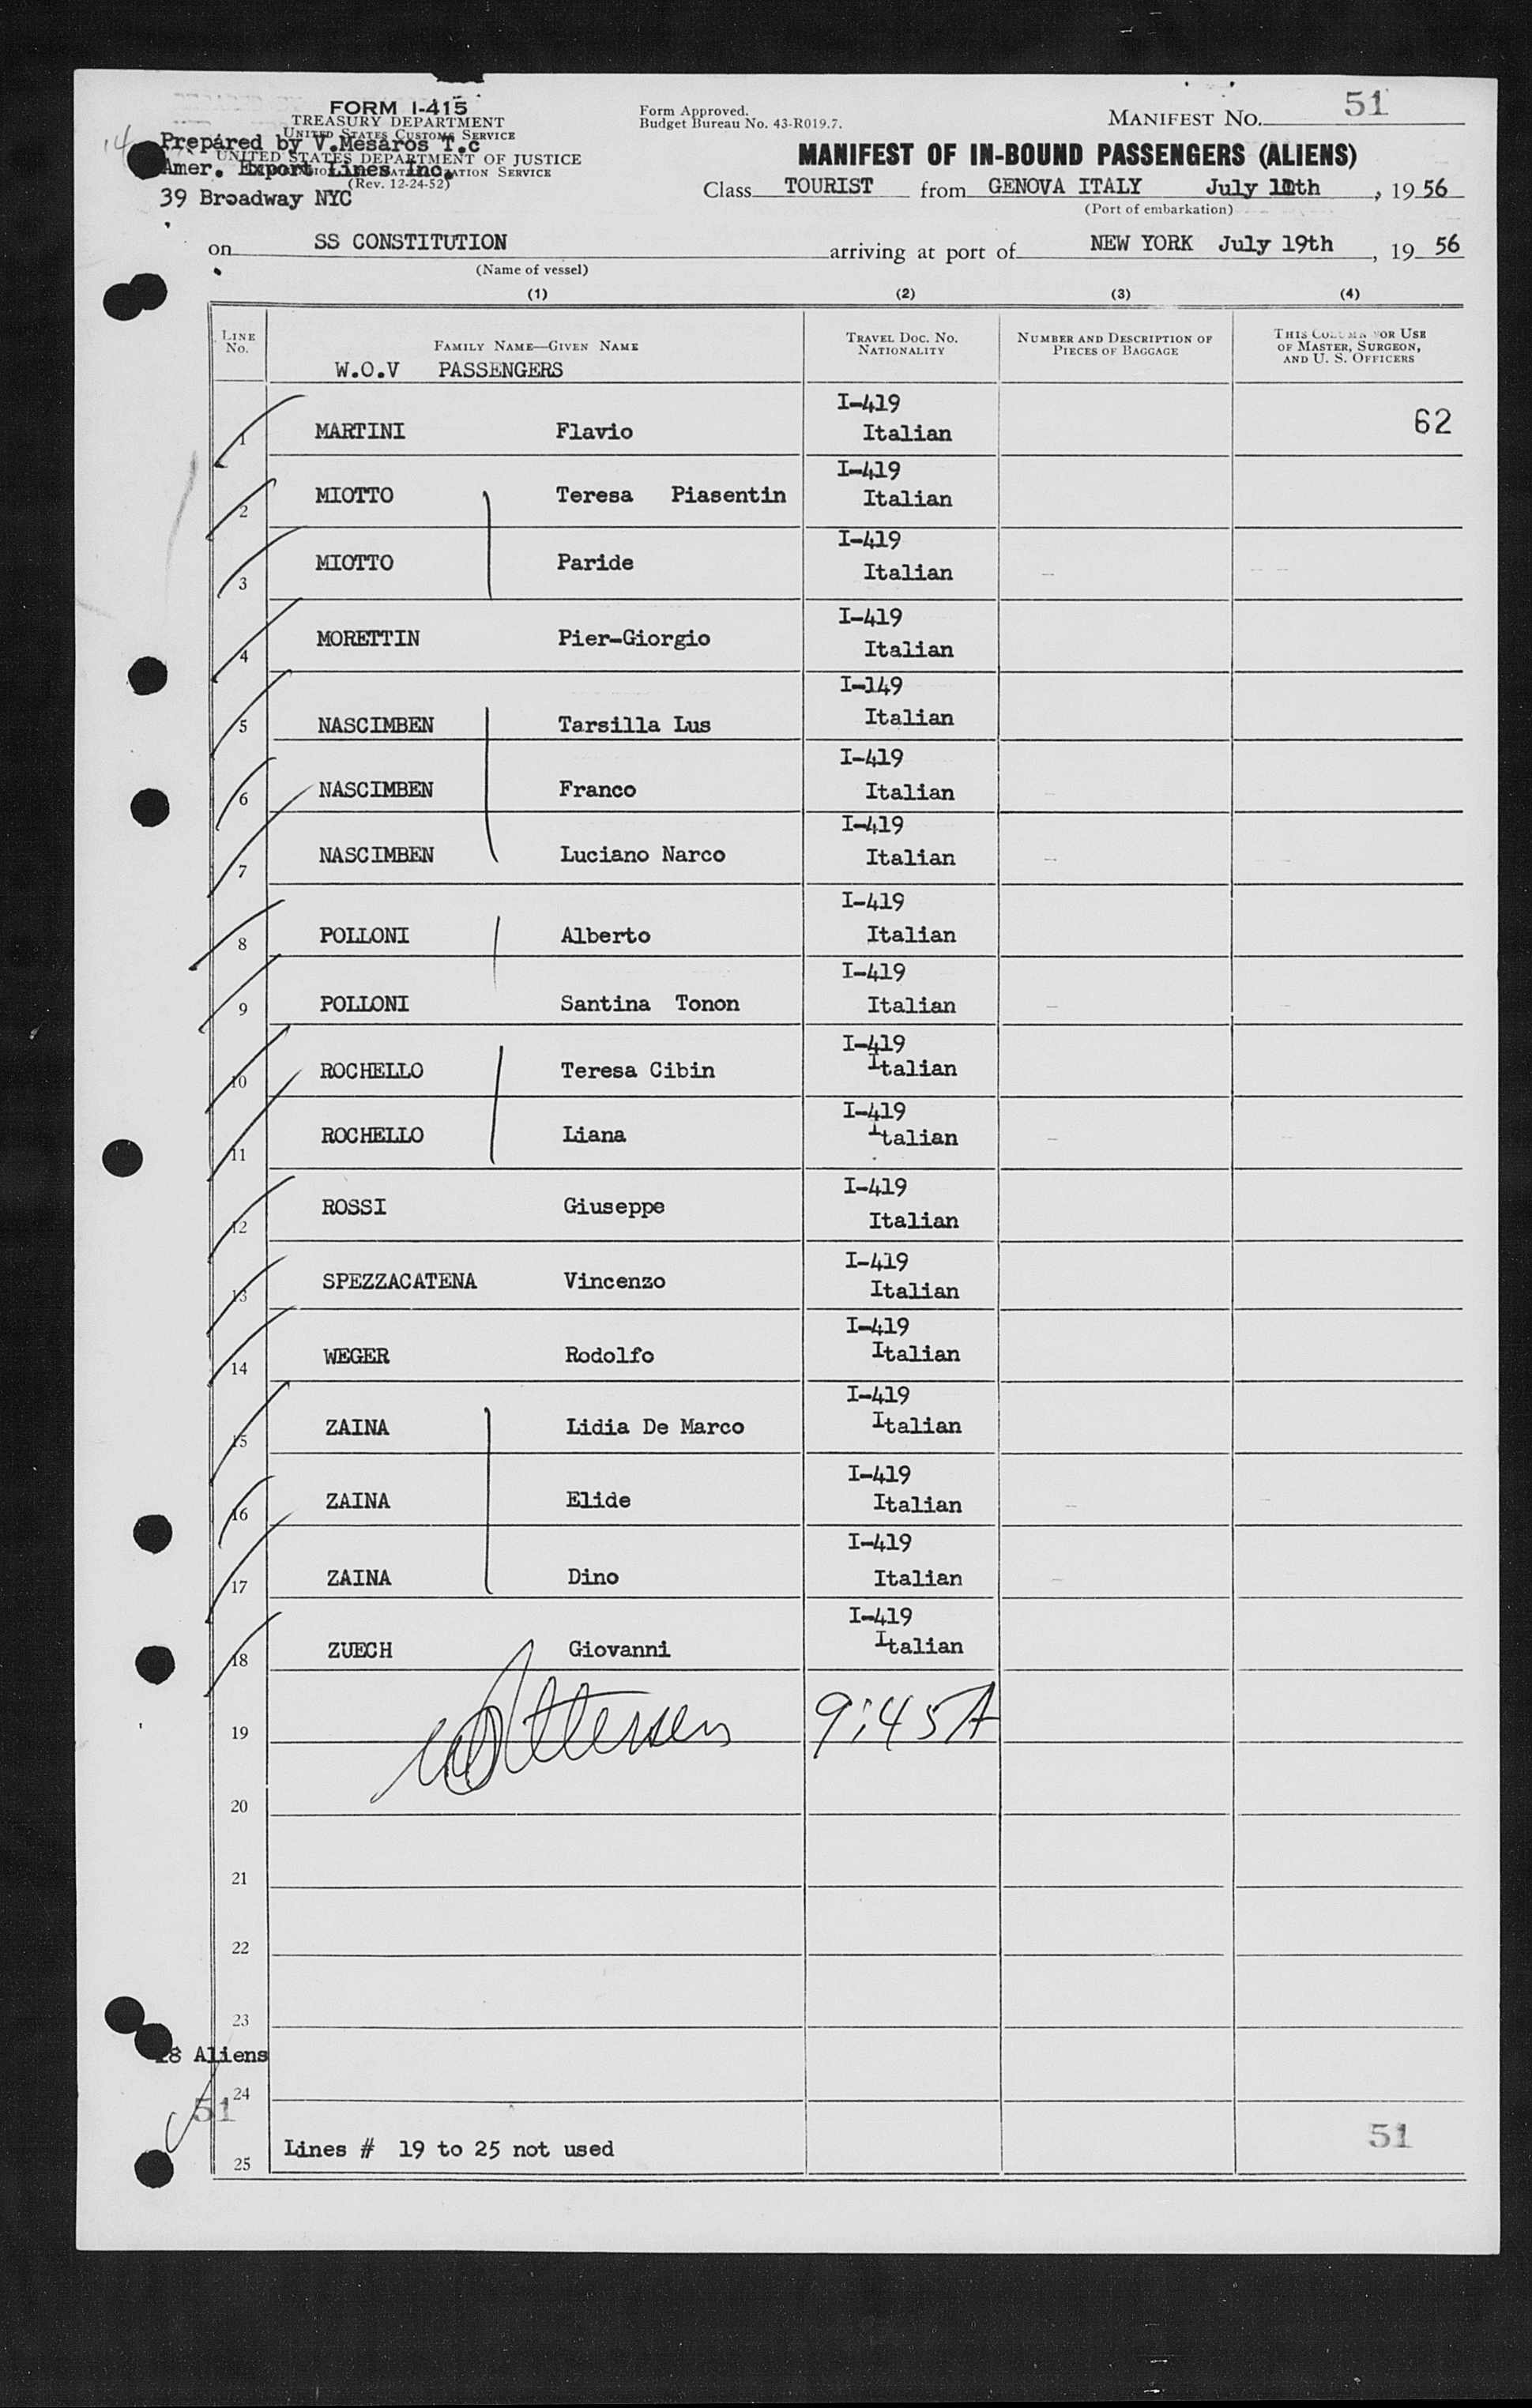 FORM I-415
TREASURY DEPARTMENT
UNITED STATES CUSTOMS SERVICE
Prepared by V.Mesaros T.c
UNITED STATES DEPARTMENT OF JUSTICE
Amer. Export Lines Inc.
(Rev. 12-24-52)
39 Broadway NYC
Form Approved.
Budget Bureau No. 43-R019.7.
MANIFEST NO. 51
MANIFEST OF IN-BOUND PASSENGERS (ALIENS)
Class TOURIST from GENOVA ITALY July , 19 56
(Port of embarkation)
on SS CONSTITUTION arriving at port of NEW YORK July 19th , 19 56
(Name of vessel)
(1) (2) (3) (4)
LINE NO. FAMILY NAME—GIVEN NAME TRAVEL DOC. NO. NATIONALITY NUMBER AND DESCRIPTION OF PIECES OF BAGGAGE THIS COLUMN FOR USE OF MASTER, SURGEON, AND U. S. OFFICERS
W.O.V PASSENGERS
1 MARTINI Flavio I-419 Italian 62
2 MIOTTO Teresa Piasentin I-419 Italian
3 MIOTTO Paride I-419 Italian
4 MORETTIN Pier-Giorgio I-419 Italian
5 NASCIMBEN Tarsilla Lus I-149 Italian
6 NASCIMBEN Franco I-419 Italian
7 NASCIMBEN Luciano Narco I-419 Italian
8 POLLONI Alberto I-419 Italian
9 POLLONI Santina Tonon I-419 Italian
10 ROCHELLO Teresa Cibin I-419 Italian
11 ROCHELLO Liana I-419 Italian
12 ROSSI Giuseppe I-419 Italian
13 SPEZZACATENA Vincenzo I-419 Italian
14 WEGER Rodolfo I-419 Italian
15 ZAINA Lidia De Marco I-419 Italian
16 ZAINA Elide I-419 Italian
17 ZAINA Dino I-419 Italian
18 ZUECH Giovanni I-419 Italian
19 9:45A
20
21
22
23
18 Aliens
24
51
25 Lines # 19 to 25 not used 51